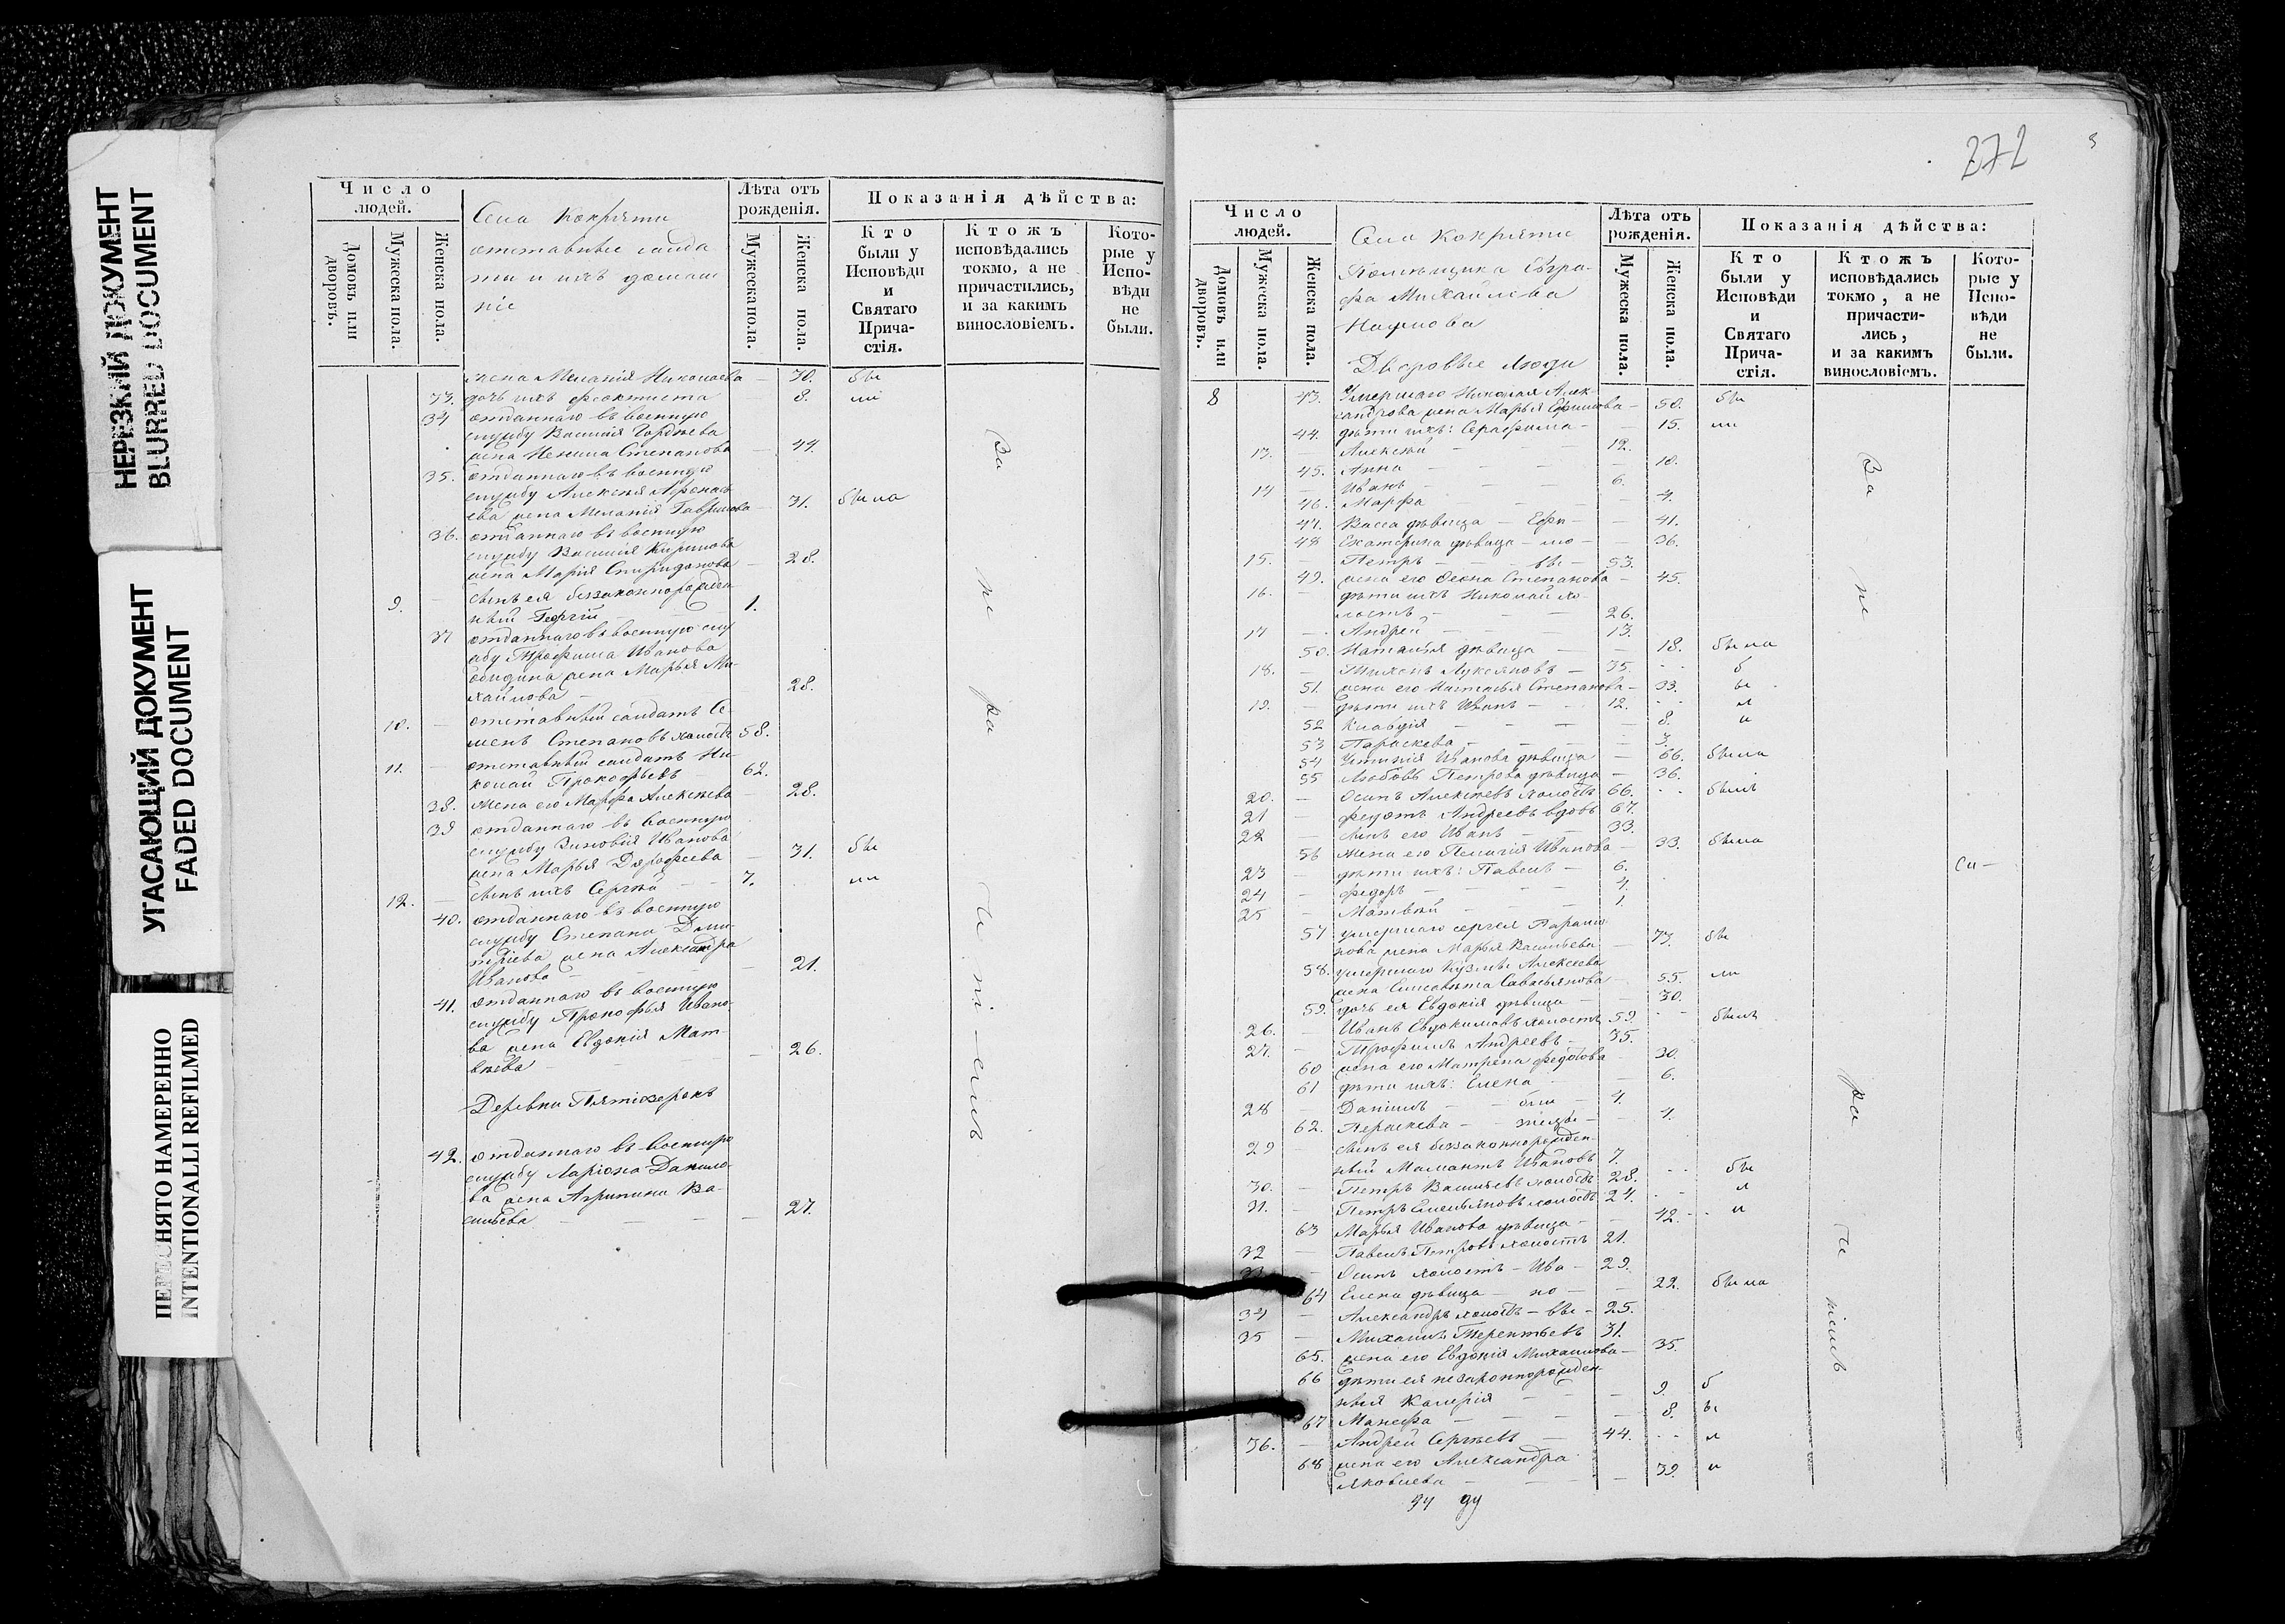 НЕРЕЗКИЙ ДОКУМЕНТ
BLURRED DOCUMENT
УГАСАЮЩИЙ ДОКУМЕНТ
FADED DOCUMENT
ПЕРЕСНЯТО НАМЕРЕННО
INTENTIONALLI REFILMED
Число людей.
Домовъ или дворовъ.
Мужеска пола.
Женска пола.
Села Кокряти
отставные салда
ты и ихъ домаш
ніе
Лѣта отъ рожденія.
Мужеска пола.
Женска пола.
Показанія дѣйства:
Кто были у Исповѣди и Святаго Прича-стія.
Ктожъ исповѣдались токмо, а не причастились, и за какимъ винословіемъ.
Кото-рые у Испо-вѣди не были.
жена Меланія Николаева — 30. бы
33. дочь ихъ Феоктиста 8. ли
34 отданнаго въ военную
службу Василія Гордѣева
жена Ненила Степанова — 44.
35. отданнаго въ военную
службу Алексѣя Афонась
ева жена Меланія Гаврилова 31. была
36. отданнаго въ военную
службу Василія Кирилова
жена Марія Спиридонова — 28.
9. — сынъ ея беззаконнорожден
ный Георгій — 1.
37 отданнаго въ военную слу
жбу Трофима Иванова
жена Марья Ми-
хайлова — 28.
10. — отставный салдатъ Се
менъ Степановъ холостъ 58.
11. — отставный салдатъ Ни-
колай Прокофьевъ 62.
38. жена его Марфа Алексѣева — 28.
39 отданнаго въ военную
службу Зиновія Иванова
жена Марья Дарофеева — 31. бы
12. — сынъ ихъ Сергѣй — 7. ли
40. отданнаго въ военную
службу Степана Дми-
тріева жена Александра
Иванова — 21.
41. отданнаго въ военную
службу Прокофья Ивано-
ва жена Евдокія Мат-
вѣева — 26.
Деревни Пятіозерокъ
42. отданнаго въ военную
службу Ларіона Данило-
ва жена Агрипина Ва-
сильева — 27.
За не ра чи ті-емъ
272
Число людей.
Домовъ или дворовъ.
Мужеска пола.
Женска пола.
Села Кокряти
Помѣщика Евгра-
фа Михайлова
Наумова
Дворовые люди
Лѣта отъ рожденія.
Мужеска пола.
Женска пола.
Показанія дѣйства:
Кто были у Исповѣди и Святаго Прича-стія.
Ктожъ исповѣдались токмо, а не причасти-лись, и за какимъ винословіемъ.
Кото-рые у Испо-вѣди не были.
8 43. Умершаго Николая Алек-
сандрова жена Марья Ефимова — 50. бы
44. дѣти ихъ: Серафима — 15. ли
13. — Алексѣй — 12.
45. Анна — 10.
14 — Иванъ — 6.
46. Марфа — 4.
47. Васса дѣвица — Ефи — 41.
48 Екатерина дѣвица — мо — 36.
15. — Петръ — вы — 53.
49. жена его Степанова — 45.
16. — дѣти ихъ Николай хо-
лостъ — 26.
17 — Андрей — 13.
50. Наталья дѣвица — 18. была
18. — Тихонъ Лукояновъ — 35 б
51. жена его Наталья Степанова — 33. ы
19. — дѣти ихъ Иванъ — 12. л
52 Клавдія — 8. и
53 Параскева — 3.
54 Устинія Иванова дѣвица — 66. была
55 Любовь Петрова дѣвица — 36.
20. — Осипъ Алексѣевъ холостъ 66. былъ
21 — Федотъ Андреевъ вдовъ 67.
22 — сынъ его Иванъ — 33.
56 жена его Пелагія Иванова — 33. была
23 — дѣти ихъ: Павелъ — 6.
24 — Федоръ — 4.
25 — Матвѣй — 1.
57 умершаго Сергея
жена Марья Васильева — 73. бы
58. умершаго Кузмы Алексеева
жена Елисавета Савельянова 55. ла
59. дочь ея Евдокія дѣвица — 30.
26. — Иванъ Евдокимовъ холостъ 59. былъ
27. — Трофимъ Андреевъ — 35.
60 жена его Матрена Федотова 30.
61 дѣти ихъ: Елена — 6.
28 — Данилъ — 4.
62. Параскева — 4.
29 — сынъ ея беззаконнорожден-
ный Мамантъ Ивановъ 7.
30. — Петръ Васильевъ холостъ 28. бы
31. — Петръ Емельяновъ холостъ 24. л
63 Марья Иванова дѣвица — 42. и
32 — Павелъ Петровъ холостъ 21.
33 — Осипъ холостъ — Ива — 29.
64 Елена дѣвица — но — 22. была
34 — Александръ холостъ — вы — 25.
35 — Михаилъ Терентьевъ 31.
65. жена его Евдокія Михаилова — 35.
66 дѣти ея незаконнорожден
ныя Калерія — 9. б
67 Манефа — 8. ы
36. — Андрей Сергѣевъ — 44. л
68 жена его Александра
Яковлева — 39. и
За не ра чи тіемъ